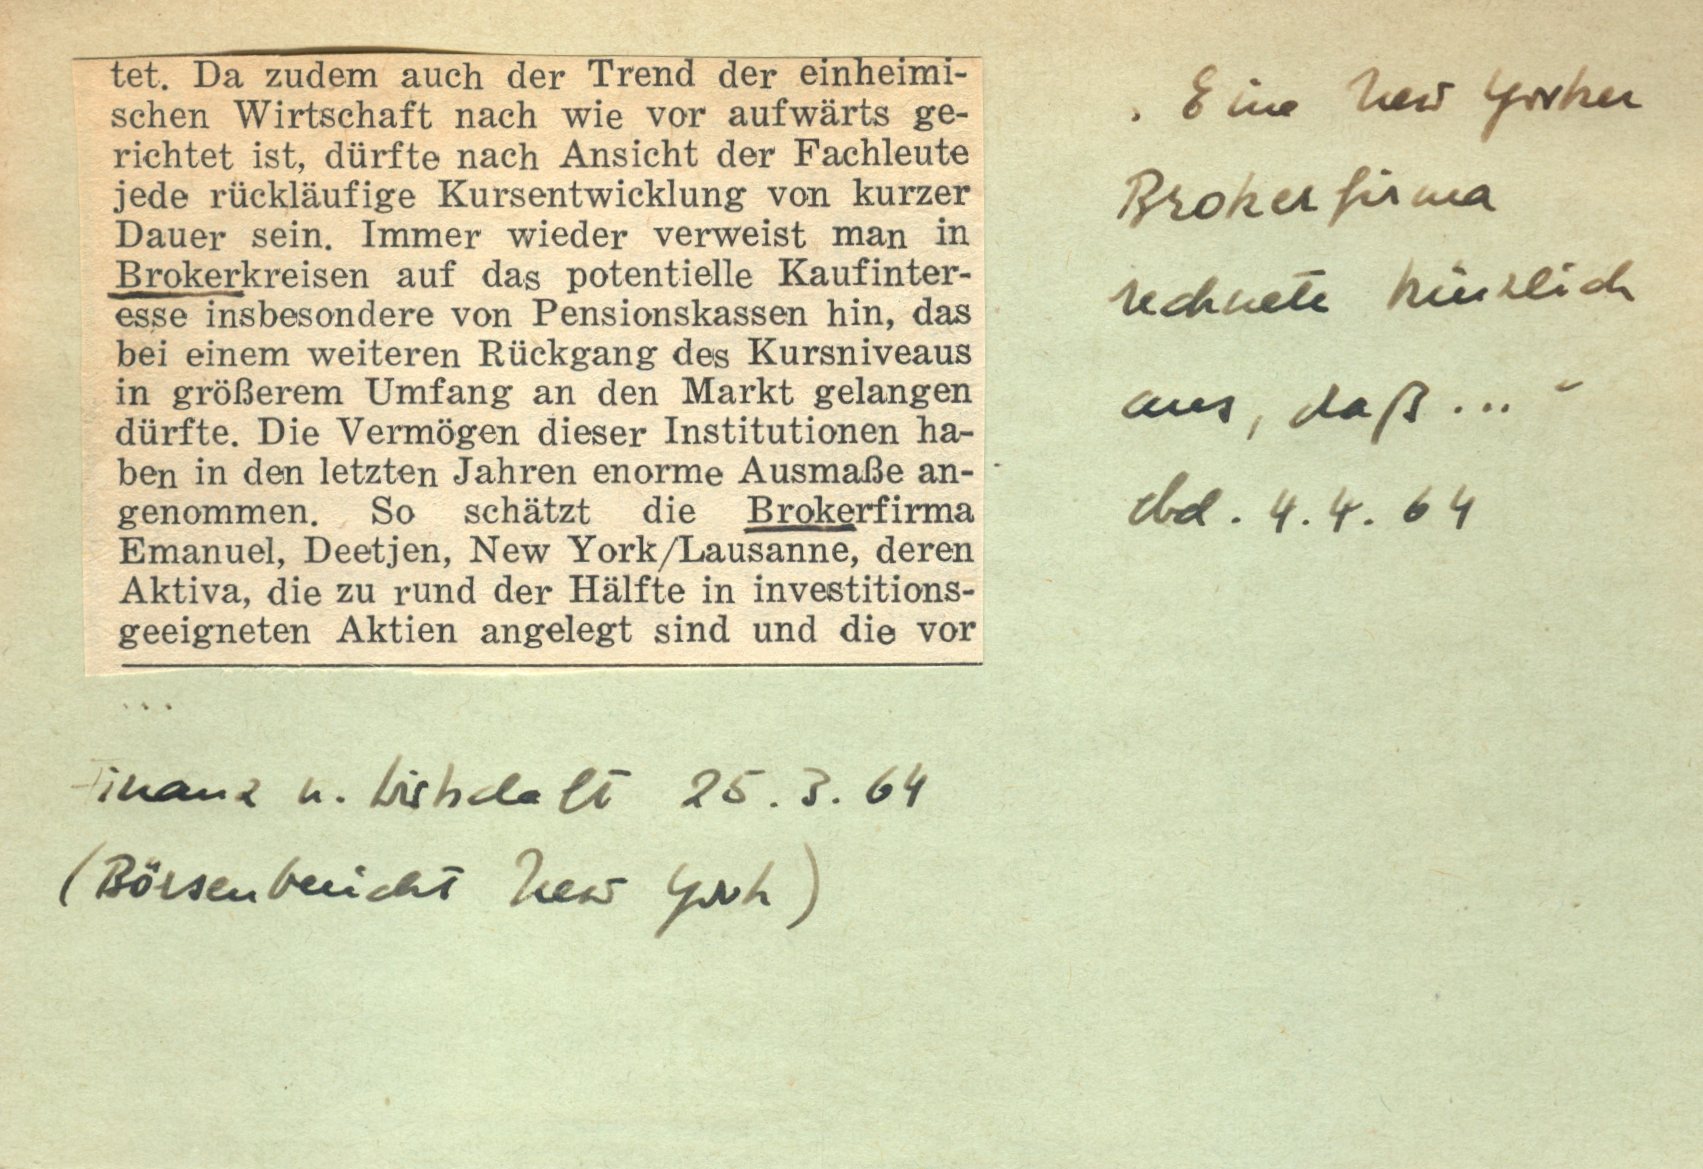 tet. Da zudem auch der Trend der einheimi-
schen Wirtschaft nach wie vor aufwärts ge-
richtet ist, dürfte nach Ansicht der Fachleute
jede rückläufige Kursentwicklung von kurzer
Dauer sein. Immer wieder verweist man in
Brokerkreisen auf das potentielle Kaufinter-
esse insbesondere von Pensionskassen hin, das
bei einem weiteren Rückgang des Kursniveaus
in größerem Umfang an den Markt gelangen
dürfte. Die Vermögen dieser Institutionen ha-
ben in den letzten Jahren enorme Ausmaße an-
genommen. So schätzt die Brokerfirma
Emanuel, Deetjen, New York/Lausanne, deren
Aktiva, die zu rund der Hälfte in investitions-
geeigneten Aktien angelegt sind und die vor
...
Finanz u. Wirtschaft 25.3.64
(Börsenbericht New York)
„Eine New Yorker
Brokerfirma
rechnete kürzlich
aus, daß ..."
ebd. 4.4.64